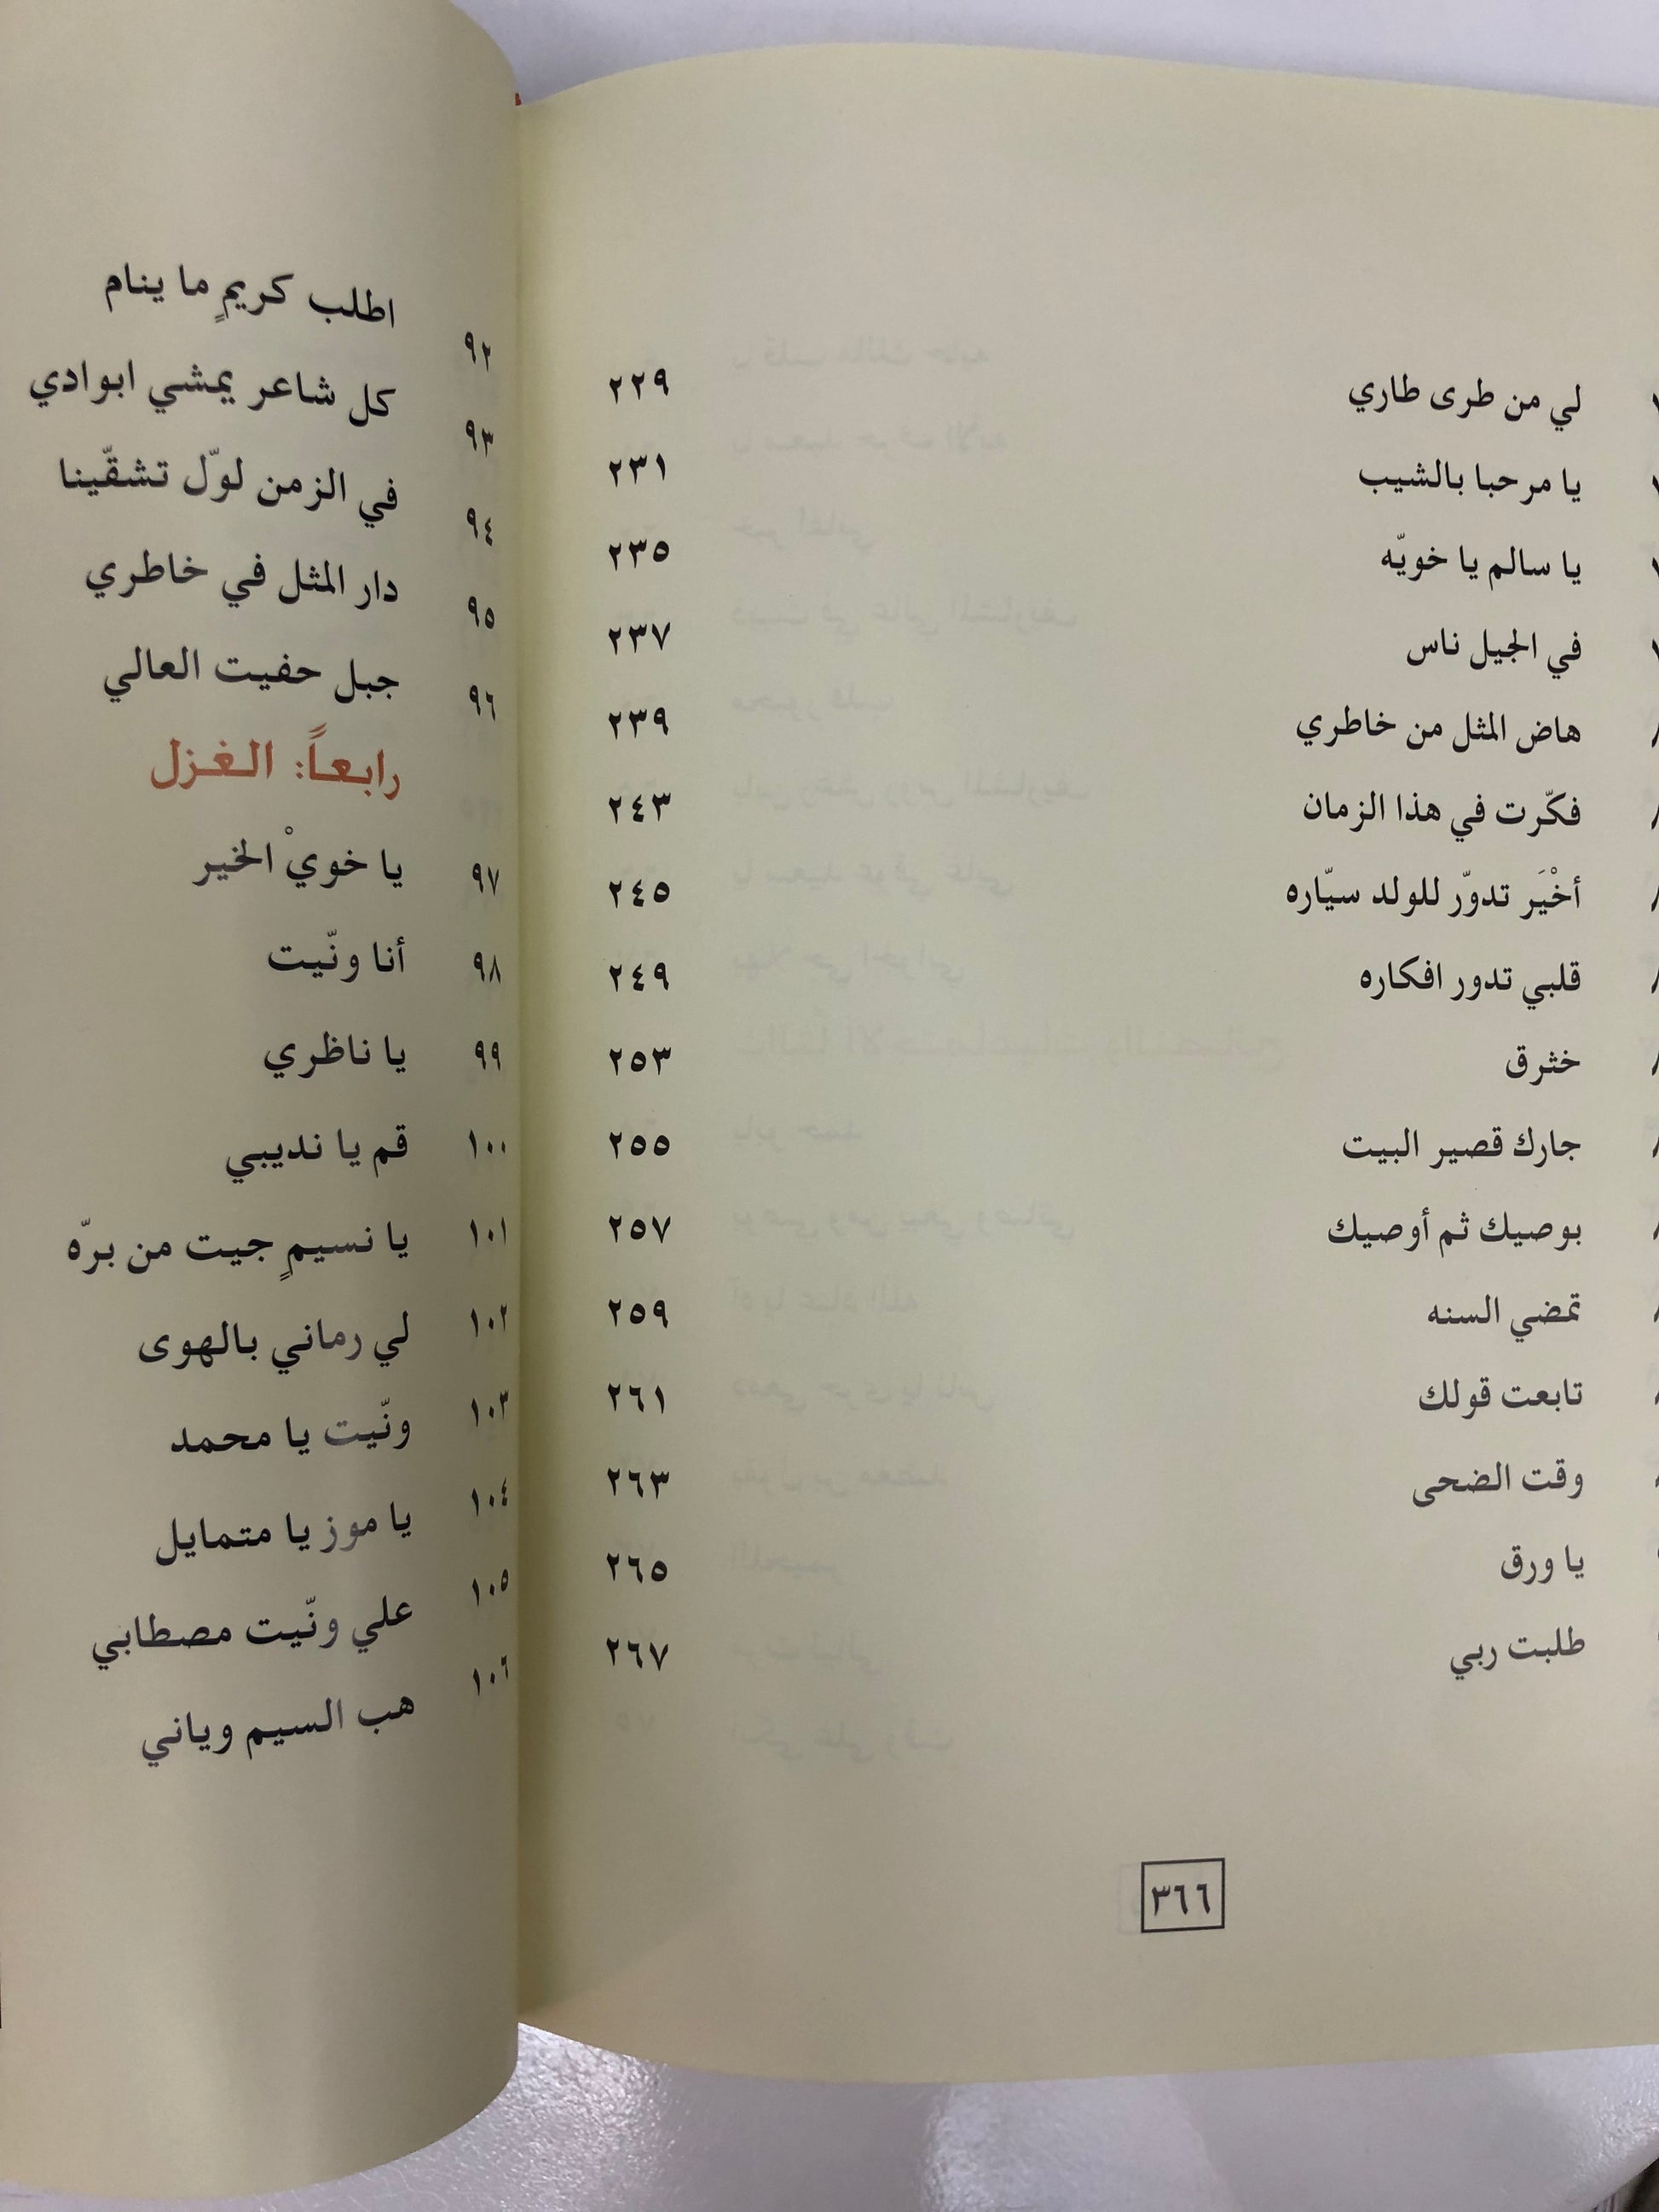 لي من طرى طاري ٢٢٩
يا مرحبا بالشيب ٢٣١
يا سالم يا خويّه ٢٣٥
في الجيل ناس ٢٣٧
هاض المثل من خاطري ٢٣٩
فكّرت في هذا الزمان ٢٤٣
أخْيَر تدوّر للولد سيّاره ٢٤٥
قلبي تدور افكاره ٢٤٩
خثرق ٢٥٣
جارك قصير البيت ٢٥٥
بوصيك ثم أوصيك ٢٥٧
تمضي السنه ٢٥٩
تابعت قولك ٢٦١
وقت الضحى ٢٦٣
يا ورق ٢٦٥
طلبت ربي ٢٦٧
٣٦٦
٩٢ اطلب كريمٍ ما ينام
٩٣ كل شاعر يمشي ابوادي
٩٤ في الزمن لوّل تشقّينا
٩٥ دار المثل في خاطري
٩٦ جبل حفيت العالي
رابعاً: الغزل
٩٧ يا خويْ الخير
٩٨ أنا ونّيت
٩٩ يا ناظري
١٠٠ قم يا نديبي
١٠١ يا نسيمٍ جيت من برّه
١٠٢ لي رماني بالهوى
١٠٣ ونّيت يا محمد
١٠٤ يا موز يا متمايل
١٠٥ علي ونّيت مصطابي
١٠٦ هب السيم وياني